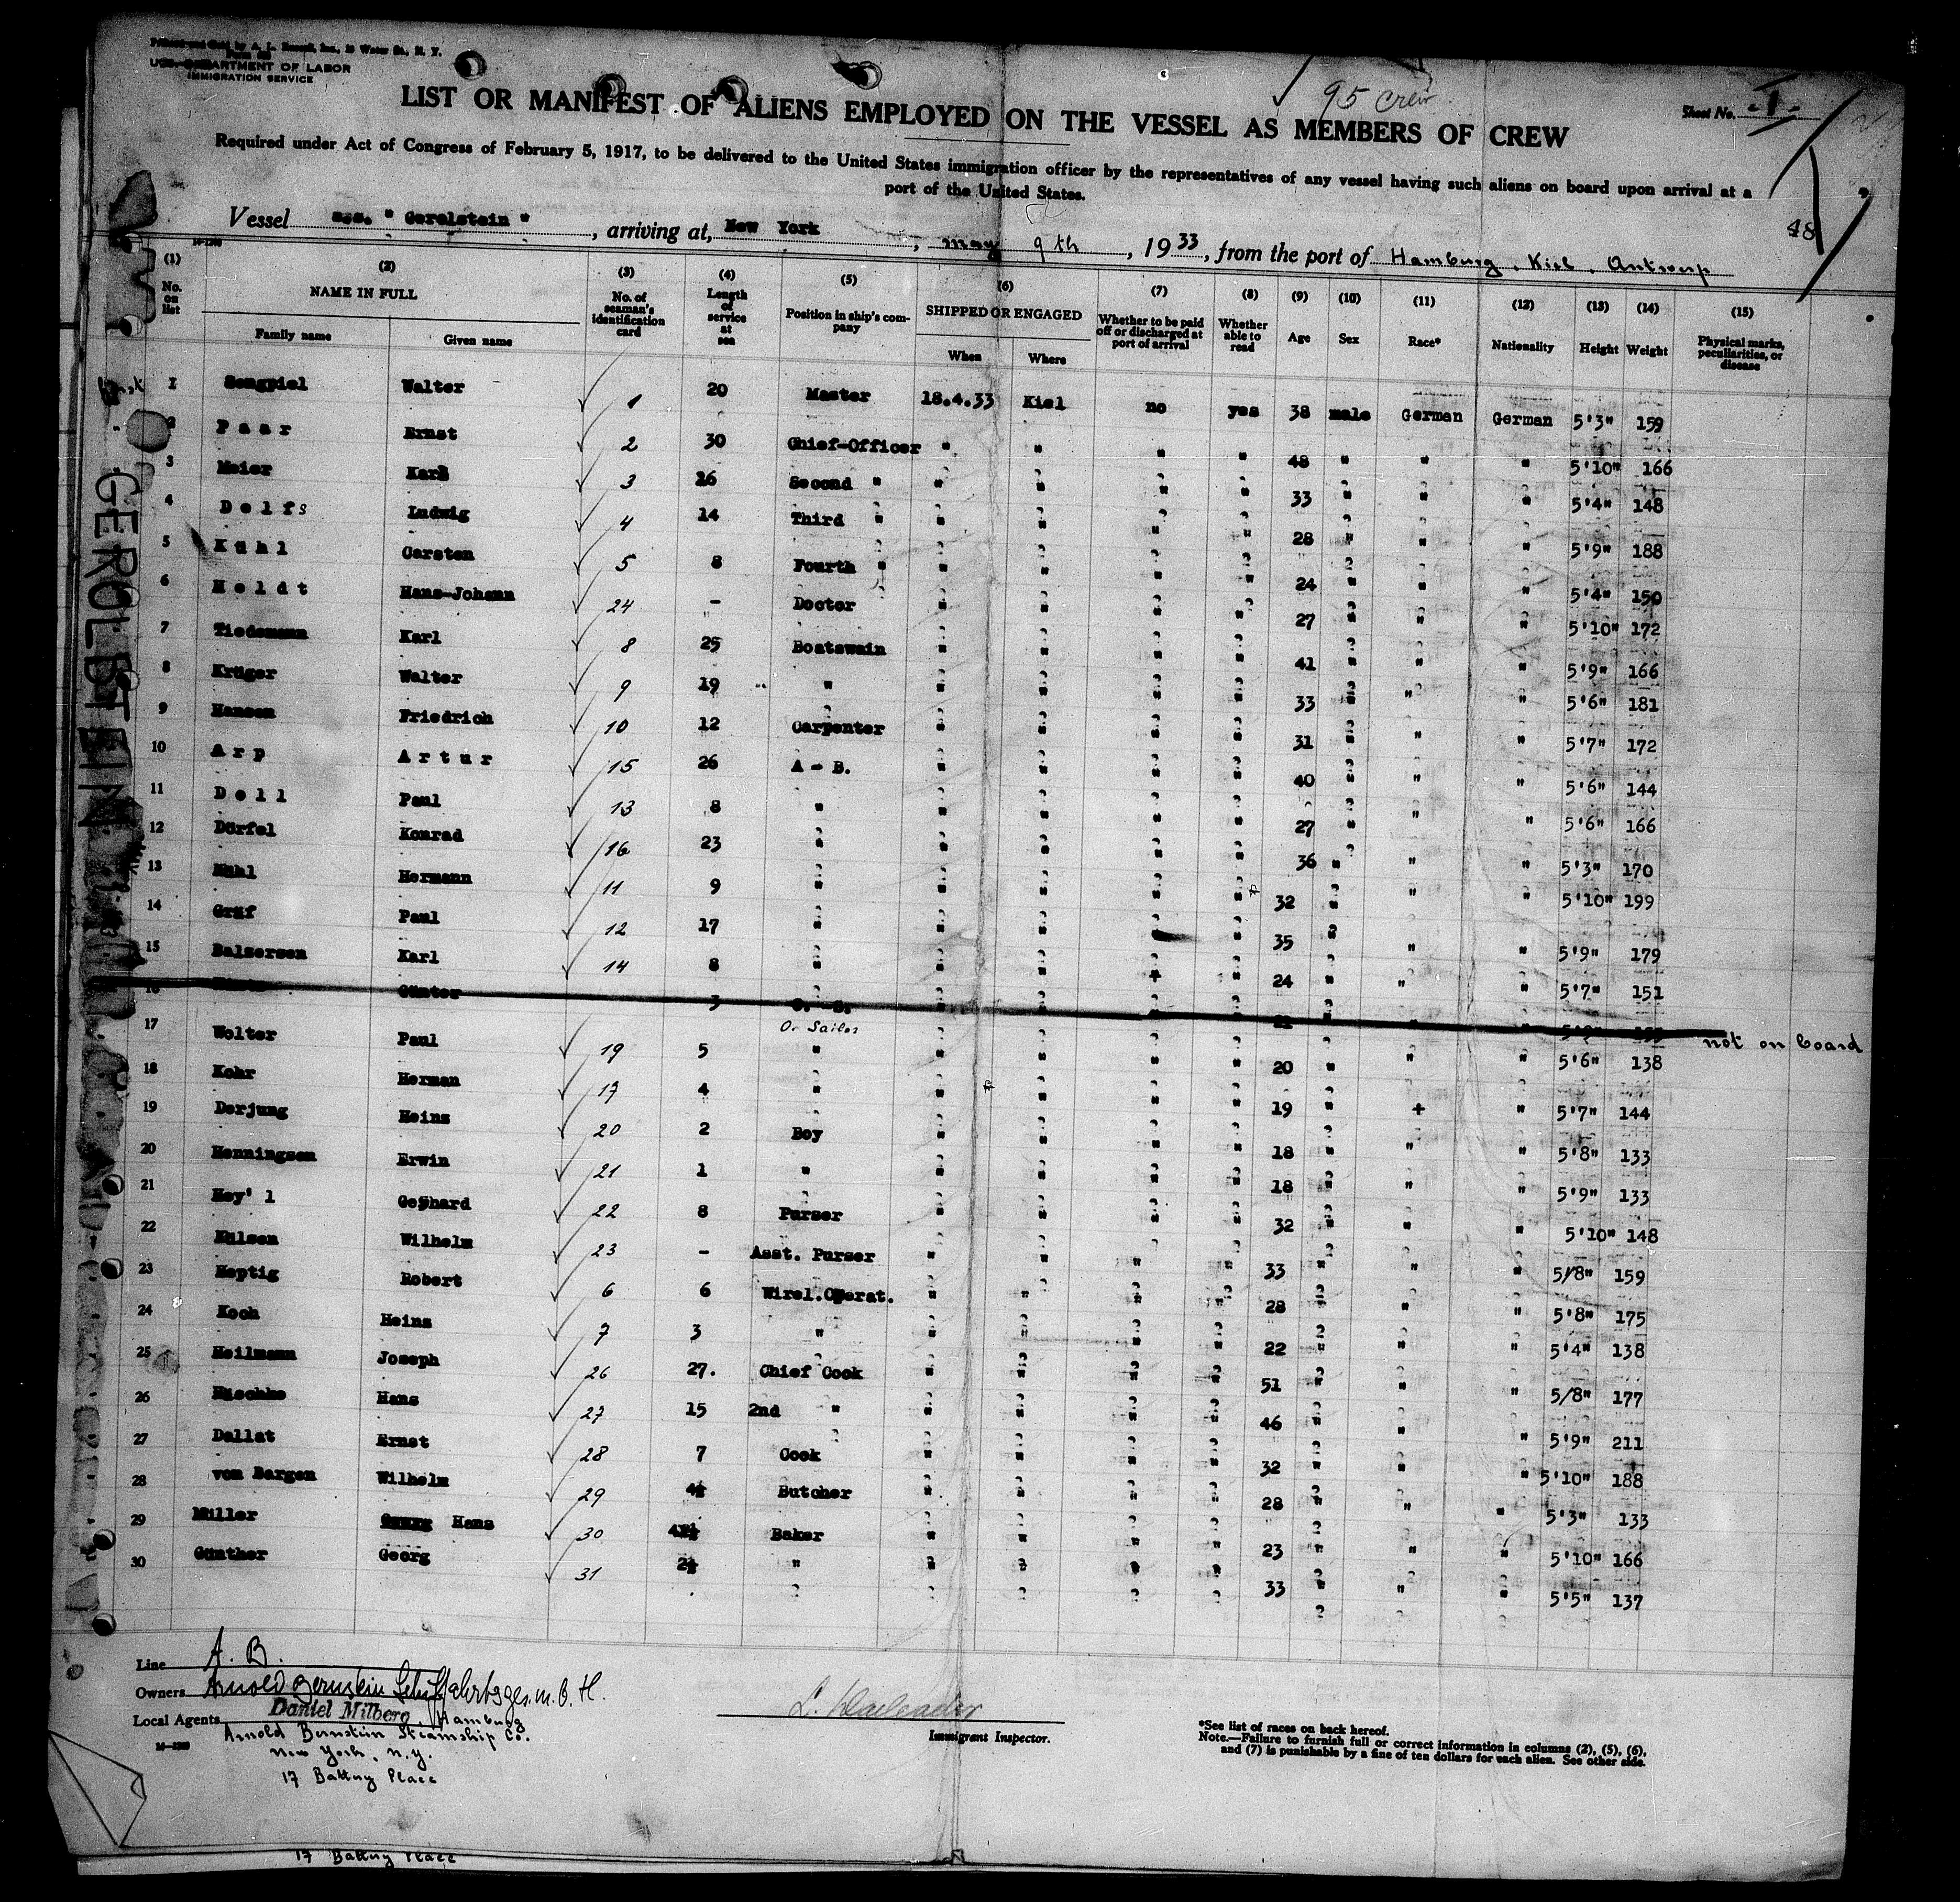 U.S. DEPARTMENT OF LABOR
IMMIGRATION SERVICE
95 Crew
Sheet No. I
LIST OR MANIFEST OF ALIENS EMPLOYED ON THE VESSEL AS MEMBERS OF CREW
Required under Act of Congress of February 5, 1917, to be delivered to the United States immigration officer by the representatives of any vessel having such aliens on board upon arrival at a
port of the United States.
48
Vessel s.s. " Gerolstein ", arriving at, New York, may 9th, 1933, from the port of Hamburg, Kiel, Antwerp
GEROLSTEIN
(1) (2) (3) (4) (5) (6) (7) (8) (9) (10) (11) (12) (13) (14) (15)
No. on list NAME IN FULL No. of seaman's identification card Length of service at sea Position in ship's company SHIPPED OR ENGAGED Whether to be paid off or discharged at port of arrival Whether able to read Age Sex Race* Nationality Height Weight Physical marks, peculiarities, or disease
Family name Given name When Where
1 Sengpiel Walter 1 20 Master 18.4.33 Kiel no yes 38 male German German 5'3" 159
2 P a a r Ernst 2 30 Chief-Officer " " " " 48 " " " 5'10" 166
3 Meier Karl 3 16 Second " " " " " 33 " " " 5'4" 148
4 D e l f s Ludwig 4 14 Third " " " " " 28 " " " 5'9" 188
5 K ü h l Carsten 5 8 Fourth " " " " " 24 " " " 5'4" 150
6 H e l d t Hans-Johann 24 - Doctor " " " " 27 " " " 5'10" 172
7 Tiedemann Karl 8 25 Boatswain " " " " 41 " " " 5'9" 166
8 Krüger Walter 9 19 " " " " " 33 " " " 5'6" 181
9 Hansen Friedrich 10 12 Carpenter " " " " 31 " " " 5'7" 172
10 A r p A r t u r 15 26 A - B. " " " " 40 " " " 5'6" 144
11 D o l l Paul 13 8 " " " " " 27 " " " 5'6" 166
12 Dörfel Konrad 16 23 " " " " " 36 " " " 5'3" 170
13 Hermann 11 9 " " " " " 32 " " " 5'10" 199
14 Gräf Paul 12 17 " " " " 35 " " 5'9" 179
15 Balzersen Karl 14 8 " " " + " 24 " " " 5'7" 151
16 Günter 3 O. S. " " " not on board
O. Sailor
17 Wolter Paul 19 5 " " " " " 20 " " " 5'6" 138
18 Kohr Herman 17 4 " " " " " 19 " + " 5'7" 144
19 Derjung Heinz 20 2 Boy " " " " 18 " " " 5'8" 133
20 Henningsen Erwin 21 1 " " " " " 18 " " " 5'9" 133
21 Hey' l Gerhard 22 8 Purser " " " " 32 " " " 5'10" 148
22 Wilhelm 23 - Asst. Purser " " " " 33 " " " 5/8" 159
23 Heptig Robert 6 6 Wirel.Operat. " " " " 28 " " " 5'8" 175
24 Koch Heinz 7 3 " " " " " 22 " " " 5'4" 138
25 Heilmann Joseph 26 27. Chief Cook " " " " 51 " " " 5/8" 177
26 Hans 27 15 2nd " " " " " 46 " " " 5'9" 211
27 Dallat Ernst 28 7 Cook " " " " 32 " " " 5'10" 188
28 von Bargen Wilhelm 29 4½ Butcher " " " " 28 " " " 5'3" 133
29 Miller Hans 30 4½ Baker " " " " 23 " " " 5'10" 166
30 Günther Georg 31 2½ " " " " " 33 " " " 5'5" 137
Line A. B.
Owners Arnold Bernstein Schiffahrtsges.m.b.H.
Hamburg
Local Agents Daniel Milberg
Arnold Bernstein Steamship Co.
New York, N.Y.
17 Battery Place
Immigrant Inspector.
*See list of races on back hereof.
Note.—Failure to furnish full or correct information in columns (2), (5), (6),
and (7) is punishable by a fine of ten dollars for each alien. See other side.
17 Battery Place